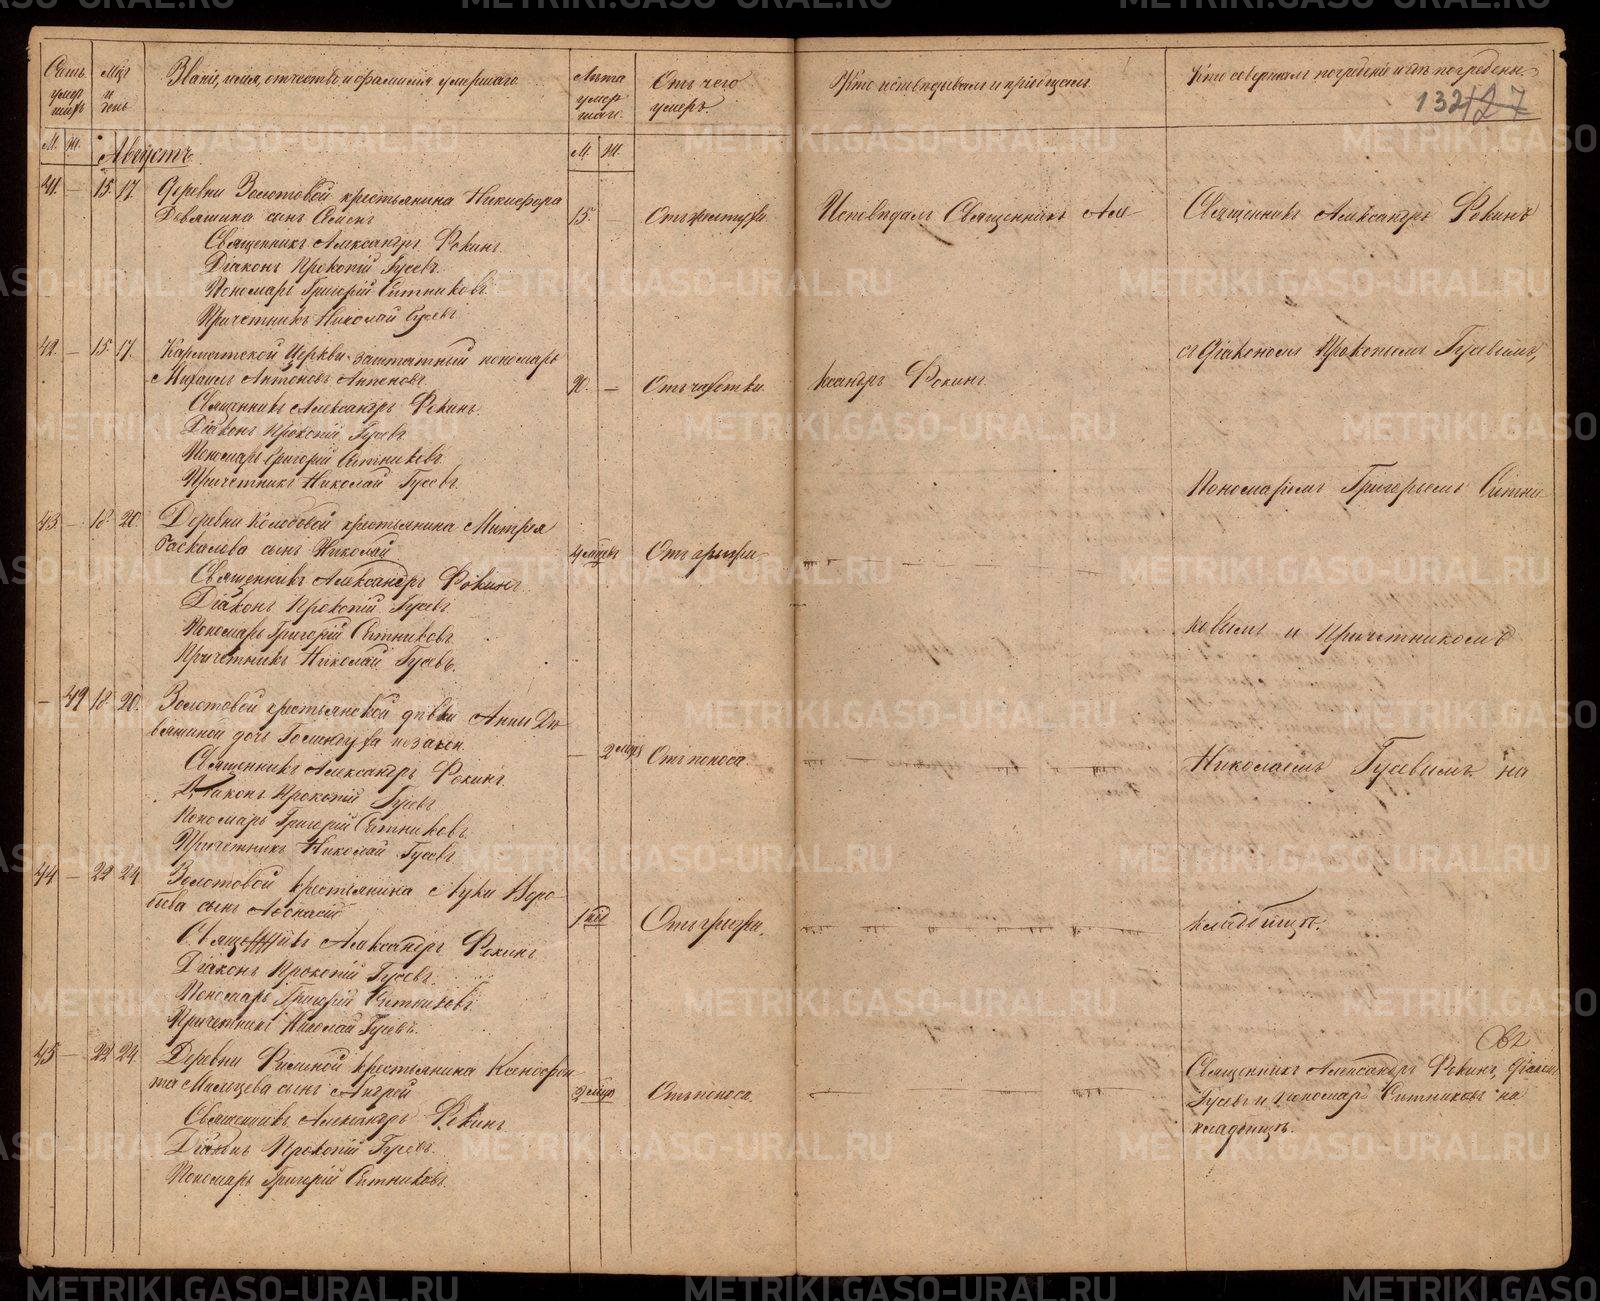 Счетъ умер шихъ
Мцъ и день
Званіе, имя, отчество и фамилія умершаго.
Лѣта умер шаг.
Отъ чего умеръ.
Кто исповѣдывалъ и пріобщалъ.
Кто совершалъ погребеніе и гдѣ погребены.
132 127
М. Ж. Августъ. М. Ж.
41. — 15. 17. Деревни Золотовой крестьянина Никифора
Девяшина сынъ Семенъ 15.
Исповѣдалъ Священникъ Але
Священникъ Александръ Фокинъ
Священникъ Александръ Фокинъ.
Діаконъ Прокопій Гусевъ.
Пономарь Григорій Ситниковъ.
Причетникъ Николай Гусевъ.
42. — 15. 17. Церкви заштатный пономарь
Михаилъ Антоновъ
— Отъ чахотки.
ксандръ Фокинъ.
съ Діакономъ Прокопіемъ Гусевымъ,
Священникъ Александръ Фокинъ.
Діаконъ Прокопій Гусевъ.
Пономарь Григорій Ситниковъ.
Причетникъ Николай Гусевъ.
Пономаремъ Григорьемъ Ситни
43 — 18. 20. Деревни Колобовой крестьянина Митрея
сынъ Николай
4 мцевъ
Священникъ Александръ Фокинъ.
Діаконъ Прокопій Гусевъ.
Пономарь Григорій Ситниковъ.
Причетникъ Николай Гусевъ.
ковымъ и Причетникомъ
— 42 18. 20. Золотовой крестьянской дѣвки Анны Де
вяшиной дочь незакон.
— 2 мцъ Отъ поноса.
Священникъ Александръ Фокинъ.
Діаконъ Прокопій Гусевъ.
Пономарь Григорій Ситниковъ.
Причетникъ Николай Гусевъ.
Николаемъ Гусевымъ на
44 — 22 24 Золотовой крестьянина Луки Воро
бьева сынъ Аѳонасій
кладбищѣ.
Александръ Фокинъ.
Діаконъ Прокопій Гусевъ.
Пономарь Григорій Ситниковъ.
Причетникъ Николай Гусевъ.
45 — 22 24. Деревни крестьянина Ксенофон
та Мальцева сынъ Андрей
2 мцъ Отъ поноса.
Священникъ Александръ Фокинъ.
Діаконъ Прокопій Гусевъ.
Пономарь Григорій Ситниковъ.
Священникъ Александръ Фокинъ, Діаконъ
Гусевъ и пономарь Ситниковъ на
кладбищѣ.
METRIKI.GASO-URAL.RU